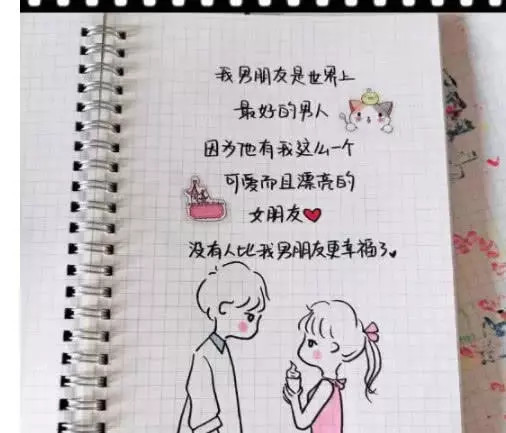 我男朋友是世界上
最好的男人
因为他有我这么一个
可爱而且漂亮的
女朋友❤
没有人比我男朋友更幸福了